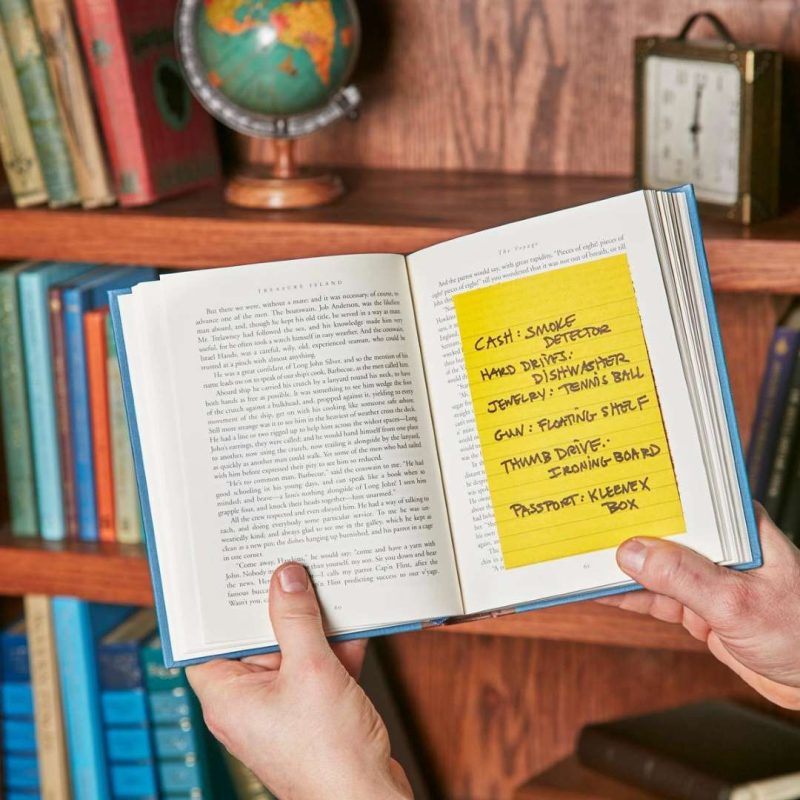 TREASURE ISLAND
But there we were, without a mate; and it was necessary, of course, to
advance one of the men. The boatswain, Job Anderson, was the likeliest
man aboard, and, though he kept his old title, he served in a way as mate.
Mr. Trelawney had followed the sea, and his knowledge made him very
useful, for he often took a watch himself in easy weather. And the coxswain,
Israel Hands, was a careful, wily, old, experienced seaman, who could be
trusted at a pinch with almost anything.
He was a great confidant of Long John Silver, and so the mention of his
name leads me on to speak of our ship's cook, Barbecue, as the men called him.
Aboard ship he carried his crutch by a lanyard round his neck, to have
both hands as free as possible. It was something to see him wedge the foot
of the crutch against a bulkhead, and, propped against it, yielding to every
movement of the ship, get on with his cooking like someone safe ashore.
Still more strange was it to see him in the heaviest of weather cross the deck.
He had a line or two rigged up to help him across the widest spaces—Long
John's earrings, they were called; and he would hand himself from one place
to another, now using the crutch, now trailing it alongside by the lanyard,
as quickly as another man could walk. Yet some of the men who had sailed
with him before expressed their pity to see him so reduced.
"He's no common man, Barbecue," said the coxswain to me. "He had
good schooling in his young days, and can speak like a book when so
minded; and brave—a lion's nothing alongside of Long John! I seen him
grapple four, and knock their heads together—him unarmed."
All the crew respected and even obeyed him. He had a way of talking to
each, and doing everybody some particular service. To me he was un-
weariedly kind; and always glad to see me in the galley, which he kept as
clean as a new pin; the dishes hanging up burnished, and his parrot in a cage
in one corner.
"Come away, Hawkins," he would say; "come and have a yarn with
John. Nobody than yourself, my son. Sit you down and hear
the news. I calls my parrot Cap'n Flint, after the
famous Flint predicting success to our v'yage.
Wasn't you,
60
The Voyage
And the parrot would say, with great rapidity, "Pieces of eight! pieces of
eight! till you wondered that it was not out of breath, or till
CASH: SMOKE
DETECTOR
HARD DRIVES:
DISHWASHER
JEWELRY: TENNIS BALL
GUN: FLOATING SHELF
THUMB DRIVE:
IRONING BOARD
PASSPORT: KLEENEX
BOX
61